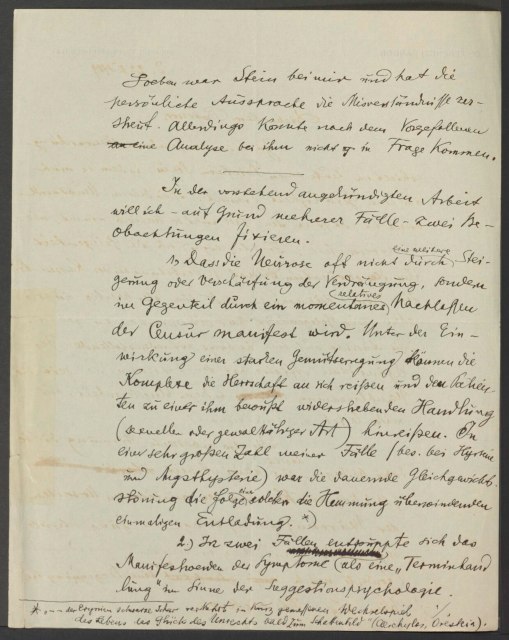 Soeben war Stein bei mir und hat die
persönliche Aussprache die Missverständnisse zer-
streut. Allerdings konnte nach dem Vorgefallenen
an eine Analyse bei ihm nicht in Frage kommen.
In der vorstehend angekündigten Arbeit
will ich - auf Grund mehrerer Fälle - zwei Be-
obachtungen fixieren.
1) Dass die Neurose oft nicht durch eine weitere Stei-
gerung oder Verschärfung der Verdrängung, sondern
im Gegenteil durch ein momentanes relatives Nachlaßen
der Censur manifest wird. Unter der Ein-
wirkung einer starken Gemütserregung können die
Komplexe die Herrschaft an sich reißen und den Patien-
ten zu einer ihm bewußt widerstrebenden Handlung
(sexueller oder gewalttätiger Art) hinreißen. In
einer sehr großen Zahl meiner Fälle (bes. bei Hysterie
und Angsthysterie) war die dauernde Gleichgewichts-
störung die Folge einer solchen die Hemmung überwindenden
einmaligen Entladung. *)
2.) In zwei Fällen entpuppte sich das
Manifestwerden der Symptome (als eine „Terminhand
lung" im Sinne der Suggestionspsychologie.
*, „- der Erynnien schwarze Schar
des Lebens das Glück des Unrechts bald zum Schattenbild" (Aeschylos, Orestein).